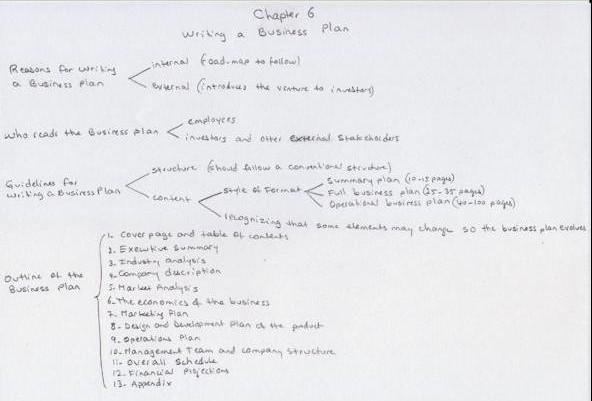 Chapter 6
Writing a Business Plan
Reasons for writing
a Business Plan
internal (road-map to follow)
External (introduces the venture to investors)
Who reads the Business plan
employees
investors and other External Stakeholders
Guidelines for
Writing a Business Plan
structure (should follow a conventional structure)
content
style of Format
Summary plan (10-15 pages)
Full business plan (25-35 pages)
Operational business plan (40-100 pages)
recognizing that some elements may change so the business plan evolves
Outline of the
Business Plan
1. Cover page and table of contents
2. Executive Summary
3. Industry analysis
4. Company description
5. Market Analysis
6. The economics of the business
7. Marketing Plan
8. Design and Development Plan of the product
9. Operations Plan
10. Management Team and company structure
11. Overall Schedule
12. Financial Projections
13. Appendix